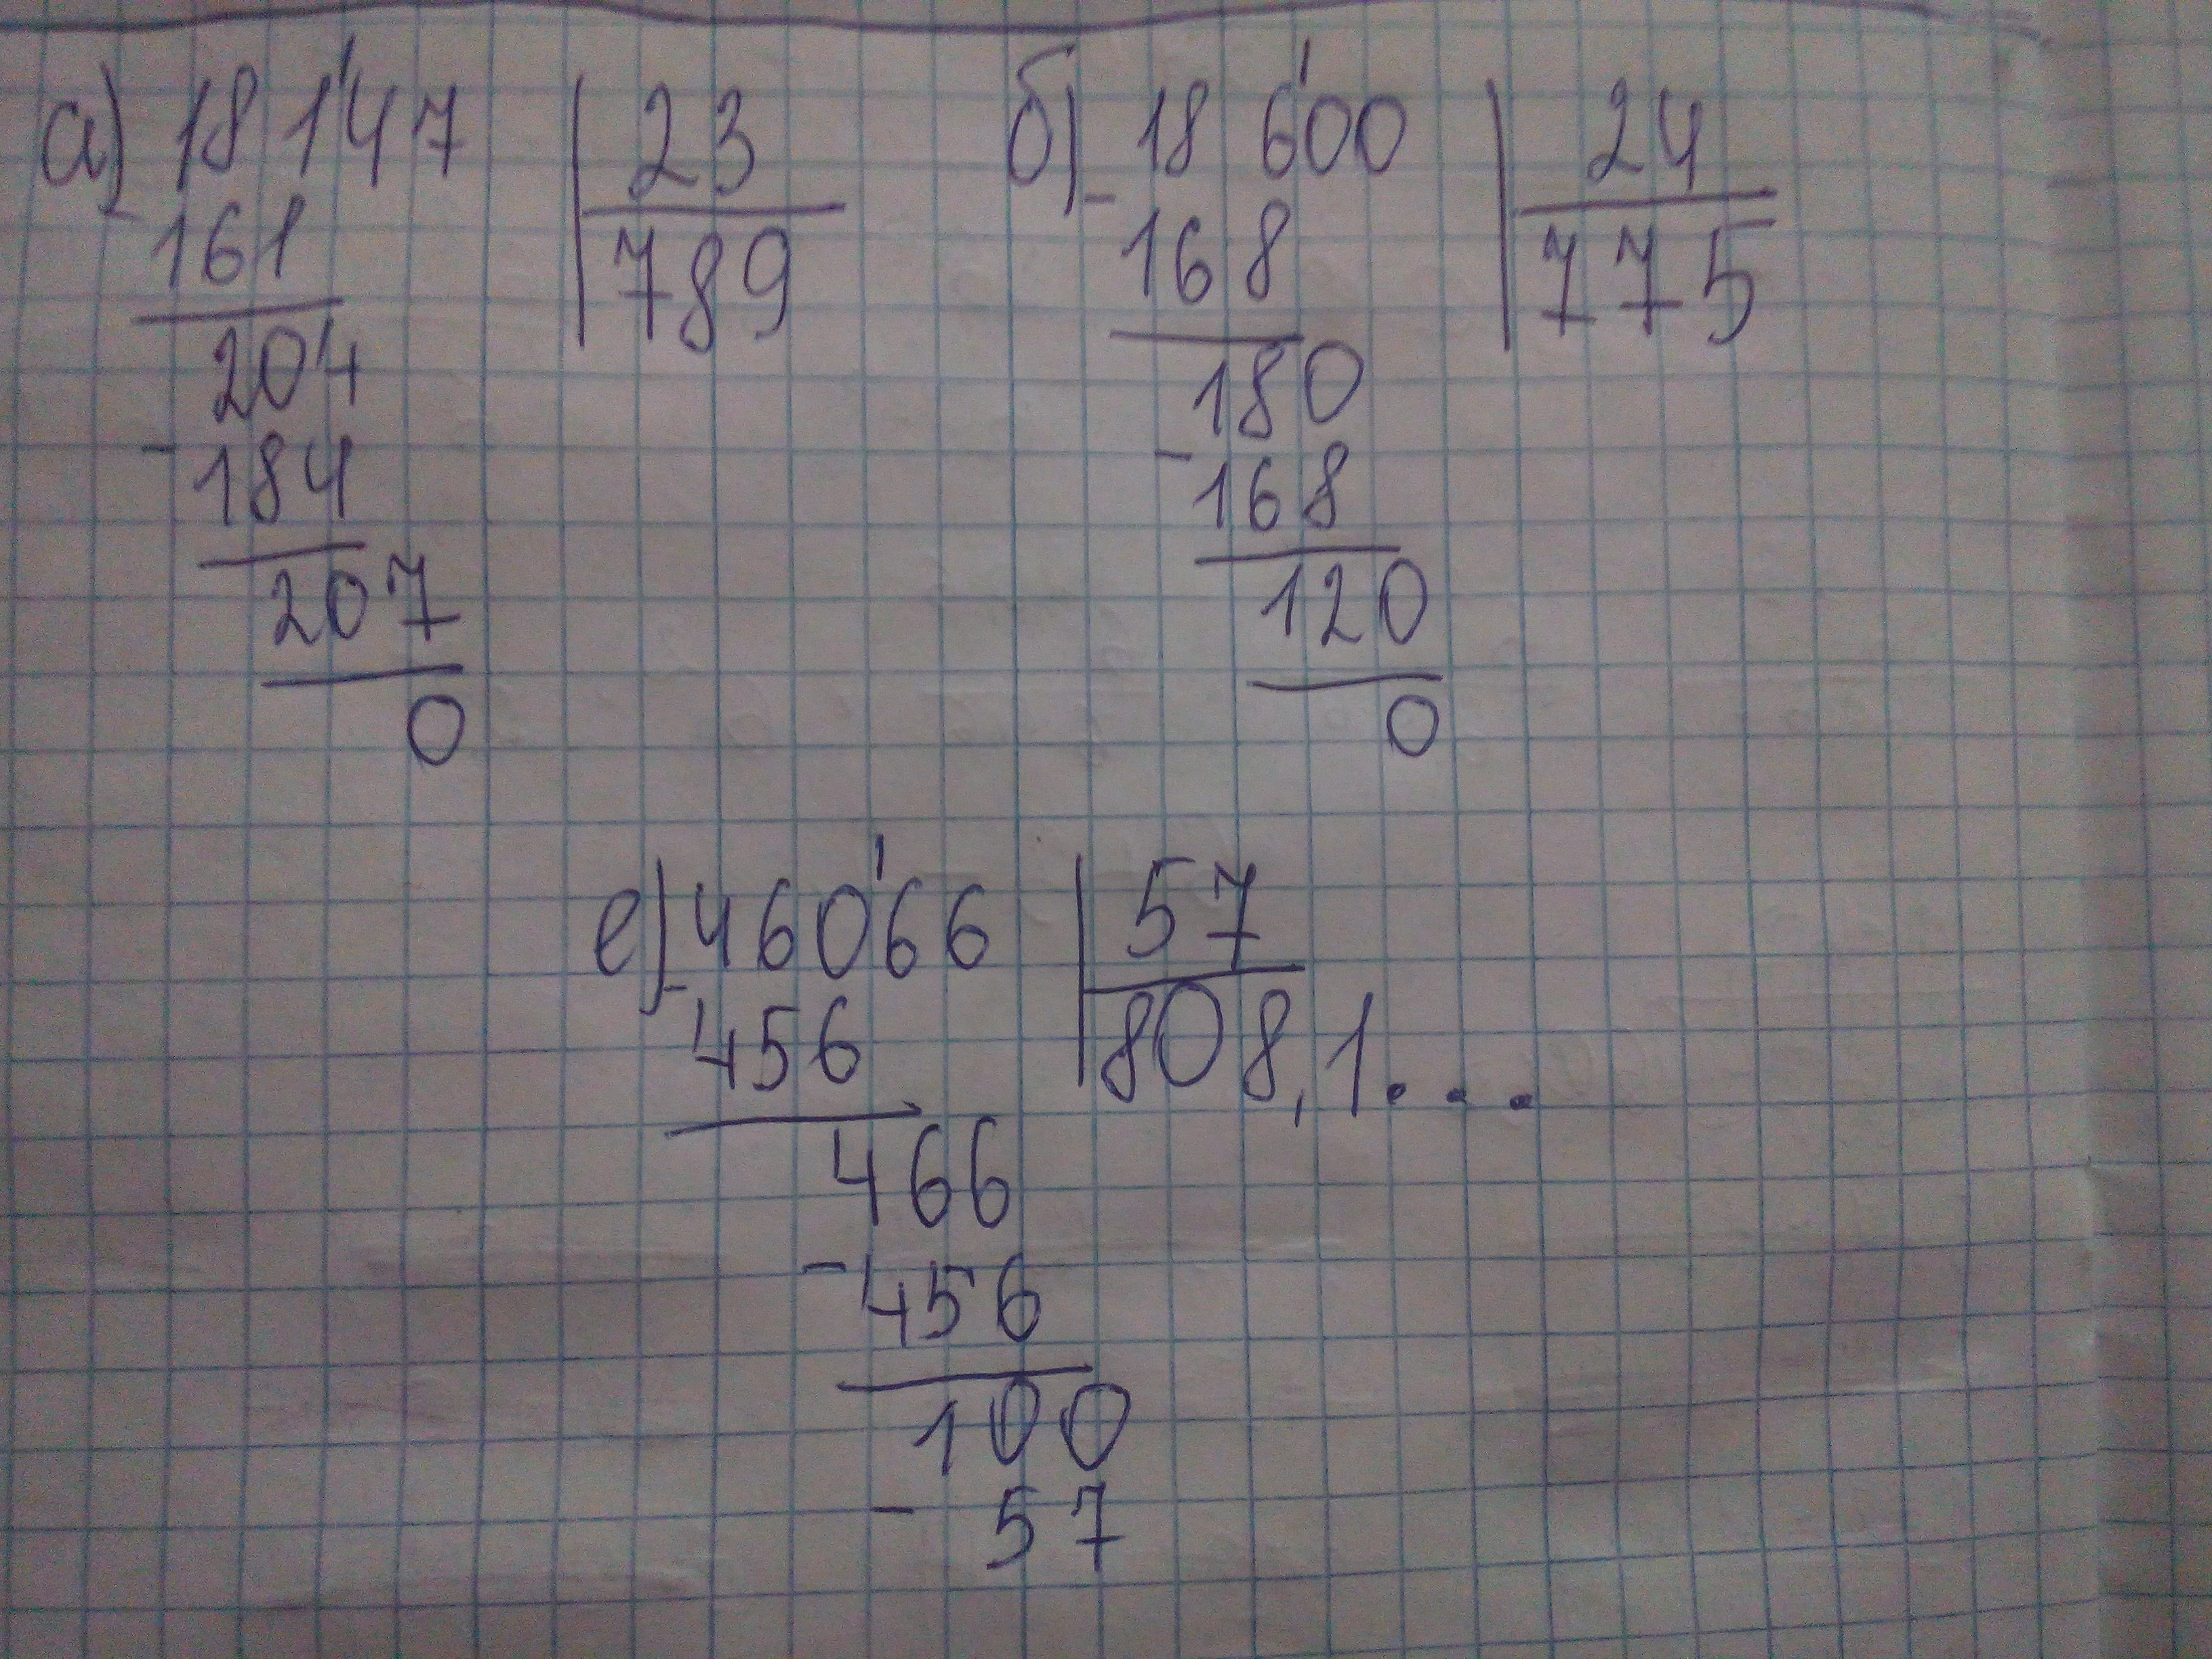 а) 18147 | 23
161 | 789
204
- 184
207
0
б) - 18 600 | 24
168 | 775
180
- 168
120
0
е) - 46066 | 57
456 | 808,1...
466
- 456
100
- 57